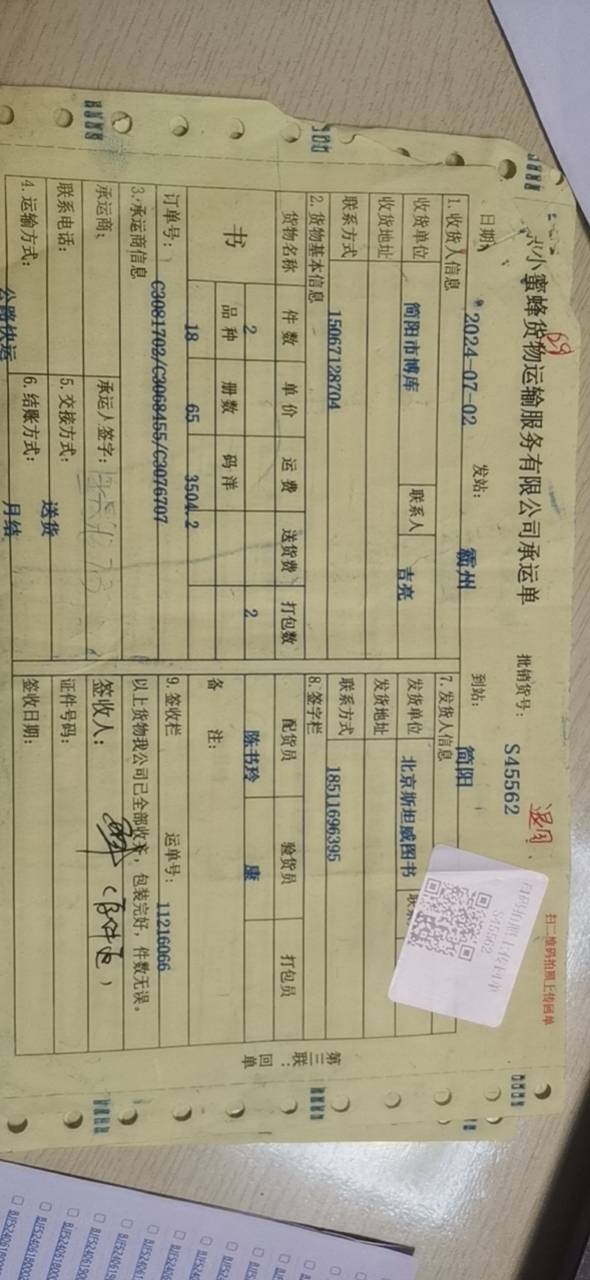 小蜜蜂货物运输服务有限公司承运单
69
批销货号： S45562
退回
扫二维码拍照上传回单
日期： 2024-07-02 发站： 霸州 到站： 简阳
1.收货人信息 7.发货人信息
收货单位 简阳市博库 联系人 吉亮 发货单位 北京斯坦威图书 联系
收货地址 发货地址
联系方式 15067128704 联系方式 18511696395
扫码拍照上传回单
S45562
2.货物基本信息 8.签字栏
货物名称 件数 单价 运费 送货费 打包数 配货员 验货员 打包员
书 2 2 陈书玲 康
品种 册数 码洋 备注：
18 65 3504.2
订单号： C3081702/C3068455/C3076707 9.签收栏 运单号： 11216066
3.承运商信息 以上货物我公司已全部收齐，包装完好，件数无误。
承运商： 承运人签字： 签收人：
联系电话： 5.交接方式： 送货 证件号码：
4.运输方式： 公路快运 6.结账方式： 月结 签收日期：
第三联：回单